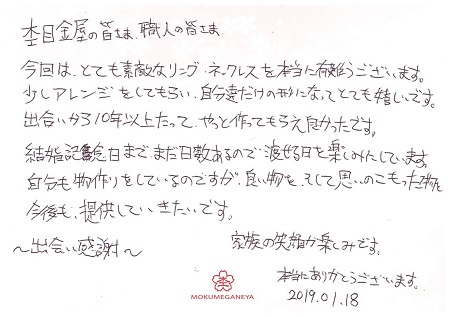 杢目金屋の皆さま、職人の皆さま
今回は、とても素敵なリング・ネックレスを本当に有難うございます。
少しアレンジをしてもらい、自分達だけの形になってとても嬉しいです。
出会いから10年以上たって、やっと作ってもらえ良かったです。
結婚記念日まで、まだ日数あるので渡せる日を楽しみにしています。
自分も物作りをしているのですが、良い物を、そして思いのこもった物を
今後も、提供していきたいです。
〜出会い感謝〜
家族の笑顔が楽しみです。
本当にありがとうございます。
2019.01.18
杢
MOKUMEGANEYA